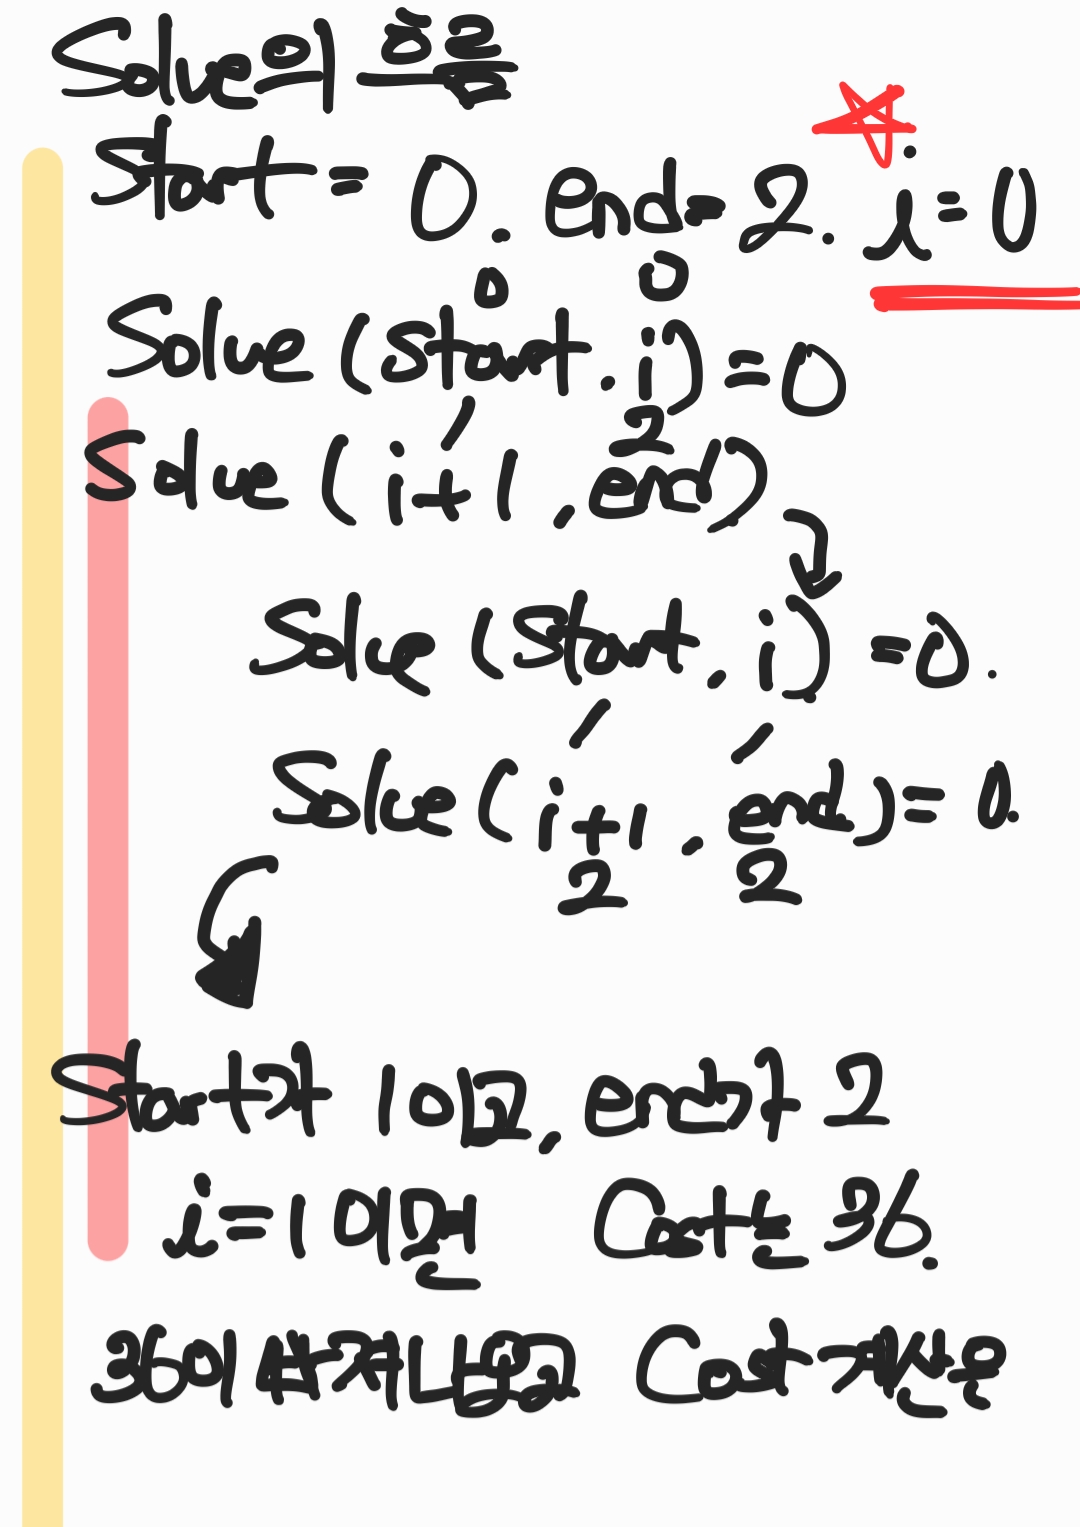 Solve의 흐름
Start = 0. end = 2. i = 0
0 0
Solve (Start. i) = 0
1 2
Solve ( i+1 , end)
Solve (Start, i) = 0.
1 1
Solve ( i+1 , end) = 0.
2 2
Start가 1이고, end가 2
i=1 이면 Cost는 36.
36이 Cost 계산은